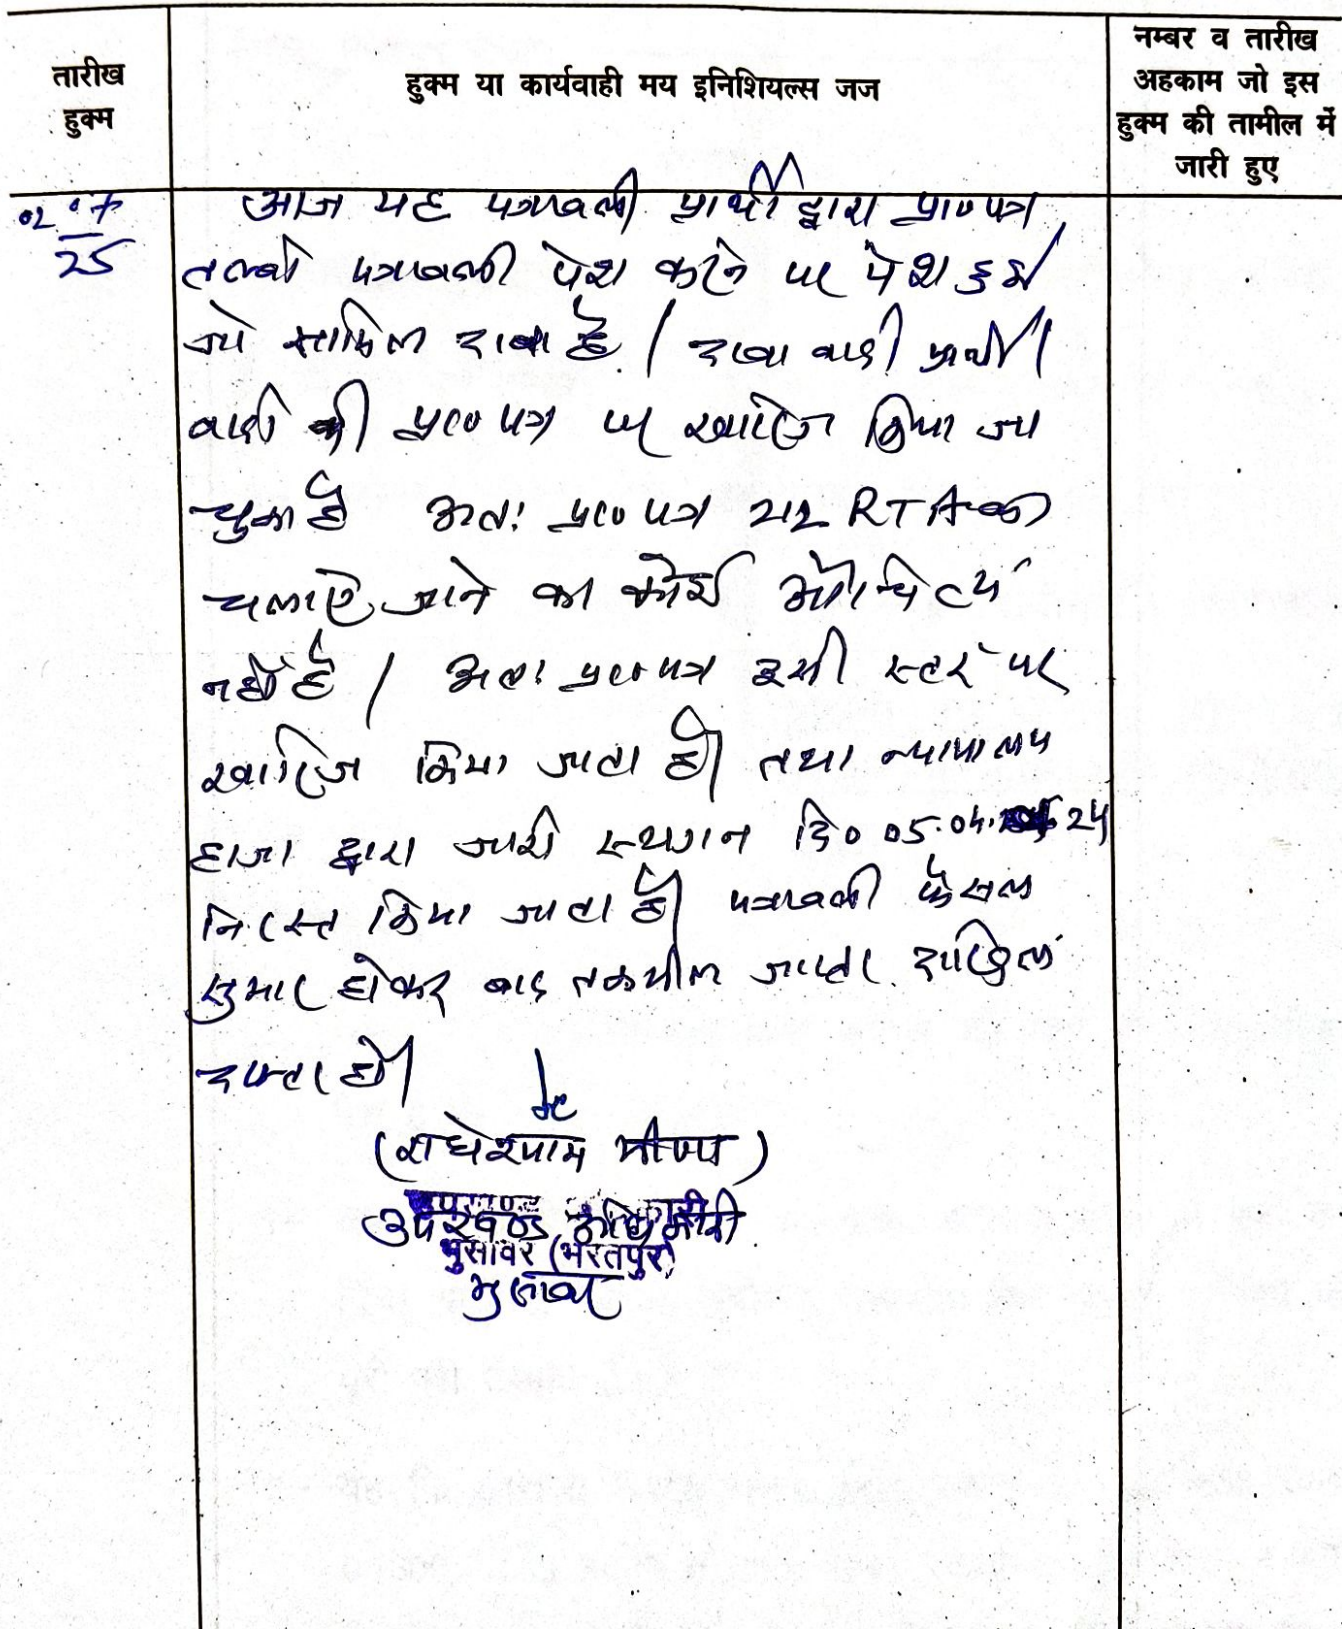 तारीख
हुक्म
हुक्म या कार्यवाही मय इनिशियल्स जज
नम्बर व तारीख
अहकाम जो इस
हुक्म की तामील में
जारी हुए
02.07
25
आज यह पत्रावली प्रार्थी द्वारा प्रा० पत्र
तलबी पत्रावली पेश करने पर पेश हुई
जो शामिल दावा है। दावा वादी प्रार्थी।
वादी की प्रा० पत्र पर खारिज किया जा
चुका है अतः प्रा० पत्र 212 RTA का
चलाऐ जाने का कोई औचित्य
नहीं है। अतः प्रा० पत्र इसी स्तर पर
खारिज किया जाता है। तथा न्यायालय
हाजा द्वारा जारी स्थगन दि० 05.04.24
निरस्त किया जाता है। पत्रावली फैसल
सुमार होकर बाद तकमील जाप्ता दाखिल
दफ्तर हो।
(राधेश्याम मीणा)
उपखण्ड अधिकारी
भुसावर (भरतपुर)
भुसावर